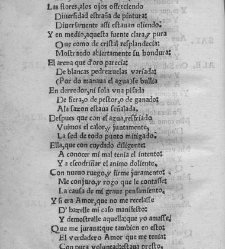 Las flores, ales ojos offreciendo
Diuersidad estraña de pintura:
Diuersamente assi estauan oliendo.
Y en medio, aquesta fuente clara, y pura
Que como de cristal resplandecia
Mostrando abiertamente su hondura:
El arena que d'oro parecia:
De blancas pedrezuelas variada:
(Por do manaua el agua) se bullia
En derredor, ni sola vna pisada
De fiera, o de pastor, o de ganado:
Ala sazon estaua señalada.
Despues que con el agua, resfriado
Vuimos el calor, y juntamente,
La sed de todo punto mitigado:
Ella, que con cuydado diligente:
A conocer mi mal tenia el intento:
Y a escodriñar el animo doliente,
Con nueuo ruego, y firme juramento:
Me conjuro, y rogo que le contasse:
La causa de mi graue pensamiento,
Y si era Amor, que no me recelasse
D' hazelle mi caso manifiesto:
Y demostralle aquella que yo amasse,
Que me juraua que tambien en esto:
El verdadero Amor que me tenia:
Con pura voluntad estaua presto.